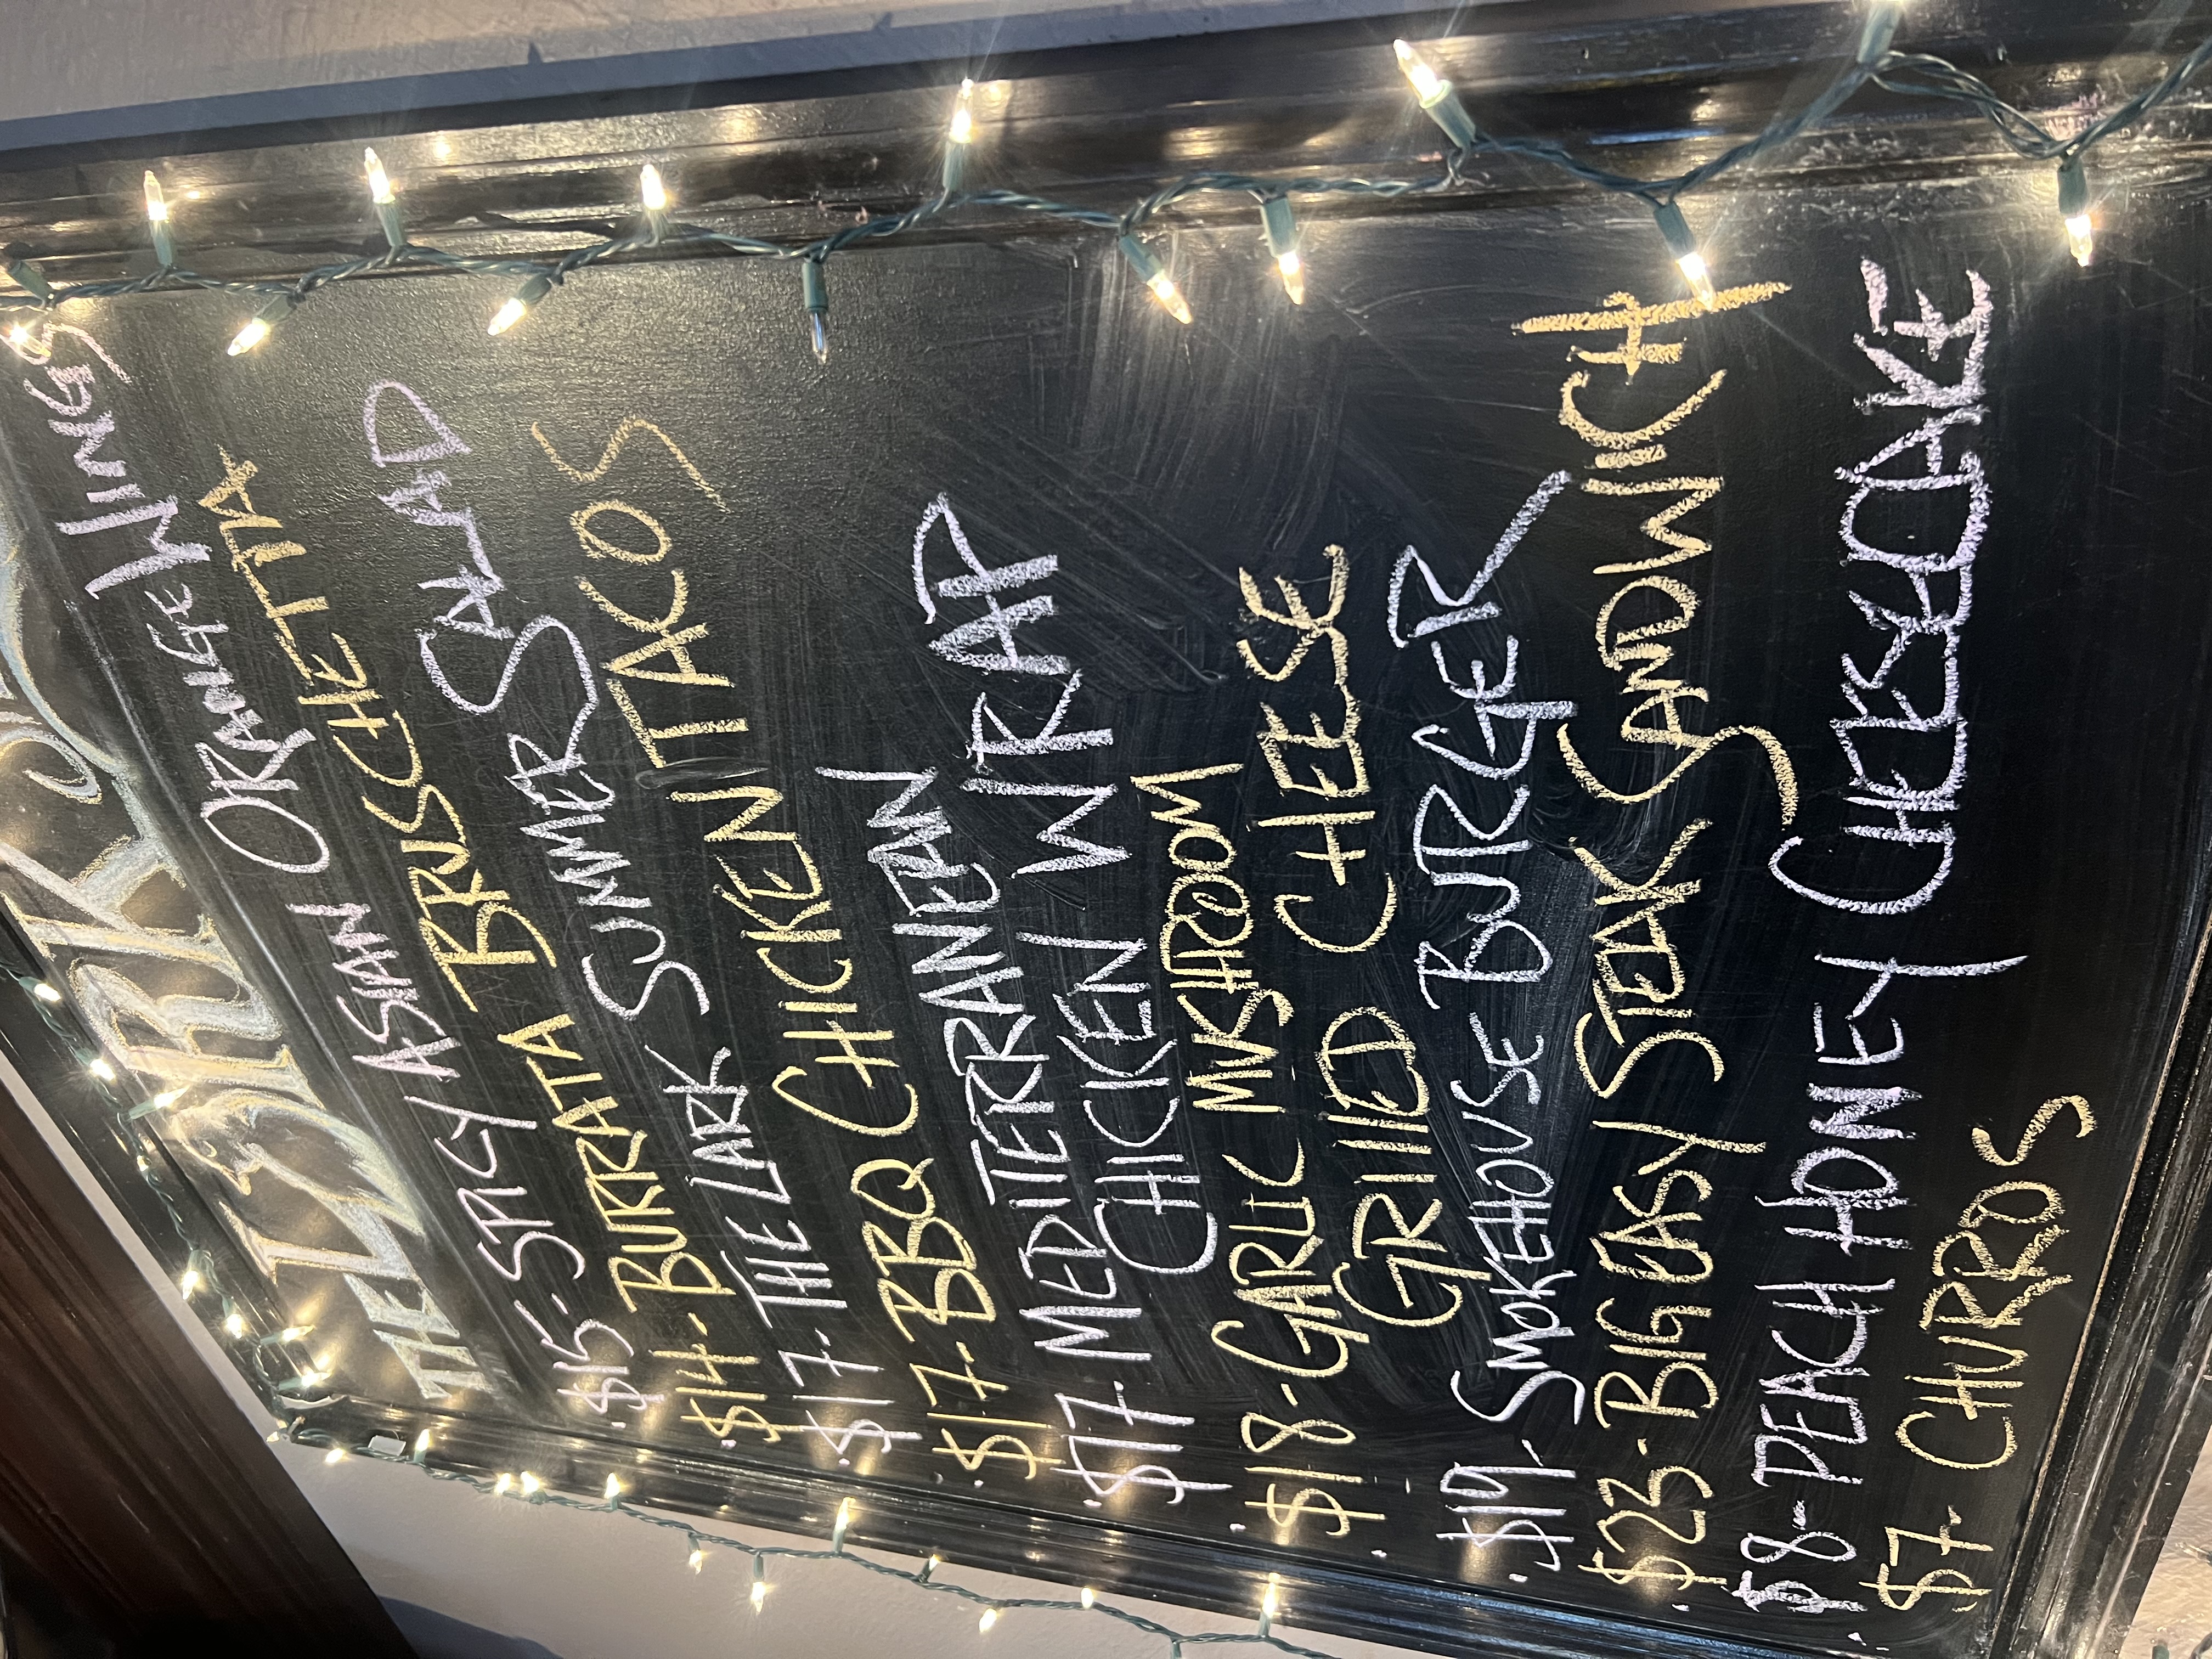 THE LARK
$15- SPICY ASIAN ORANGE WINGS
$14- BURRATA BRUSCHETTA
$17- THE LARK SUMMER SALAD
$17- BBQ CHICKEN TACOS
$17- MEDITERRANEAN
CHICKEN WRAP
$18- GARLIC MUSHROOM
GRILLED CHEESE
$19- SMOKEHOUSE BURGER
$23- BIG EASY STEAK SANDWICH
$8- PEACH HONEY CHEESECAKE
$7- CHURROS